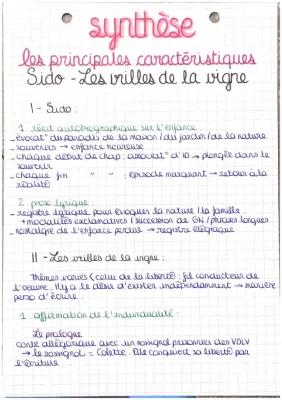 synthèse
les principales caractéristiques
Sido - Les vrilles de la vigne
I - Sido :
1. récit autobiographique sur l'enfance
- évocat° du paradis de la maison / du jardin / de la nature
- souvenirs → enfance heureuse
- chaque début de chap : évocat° d'1D → plongée dans le
souvenir
- chaque fin " " : épisode marquant → retour à la
réalité
2. prose lyrique :
- registre lyrique pour évoquer la nature / la famille
→ modalités exclamatives / succession de GN / phrases longues
- nostalgie de l'enfance perdue → registre élégiaque
II - Les vrilles de la vigne :
Thèmes variés (celui de la liberté : fil conducteur de
l'oeuvre. Il y a le désir d'exister indépendamment → manière
perso d'écrire.
1. affirmation de l'individualité :
Le prologue
conte allégorique avec un rossignol prisonnier des VDLV
→ le rossignol = Colette. Elle conquiert sa liberté par
l'écriture